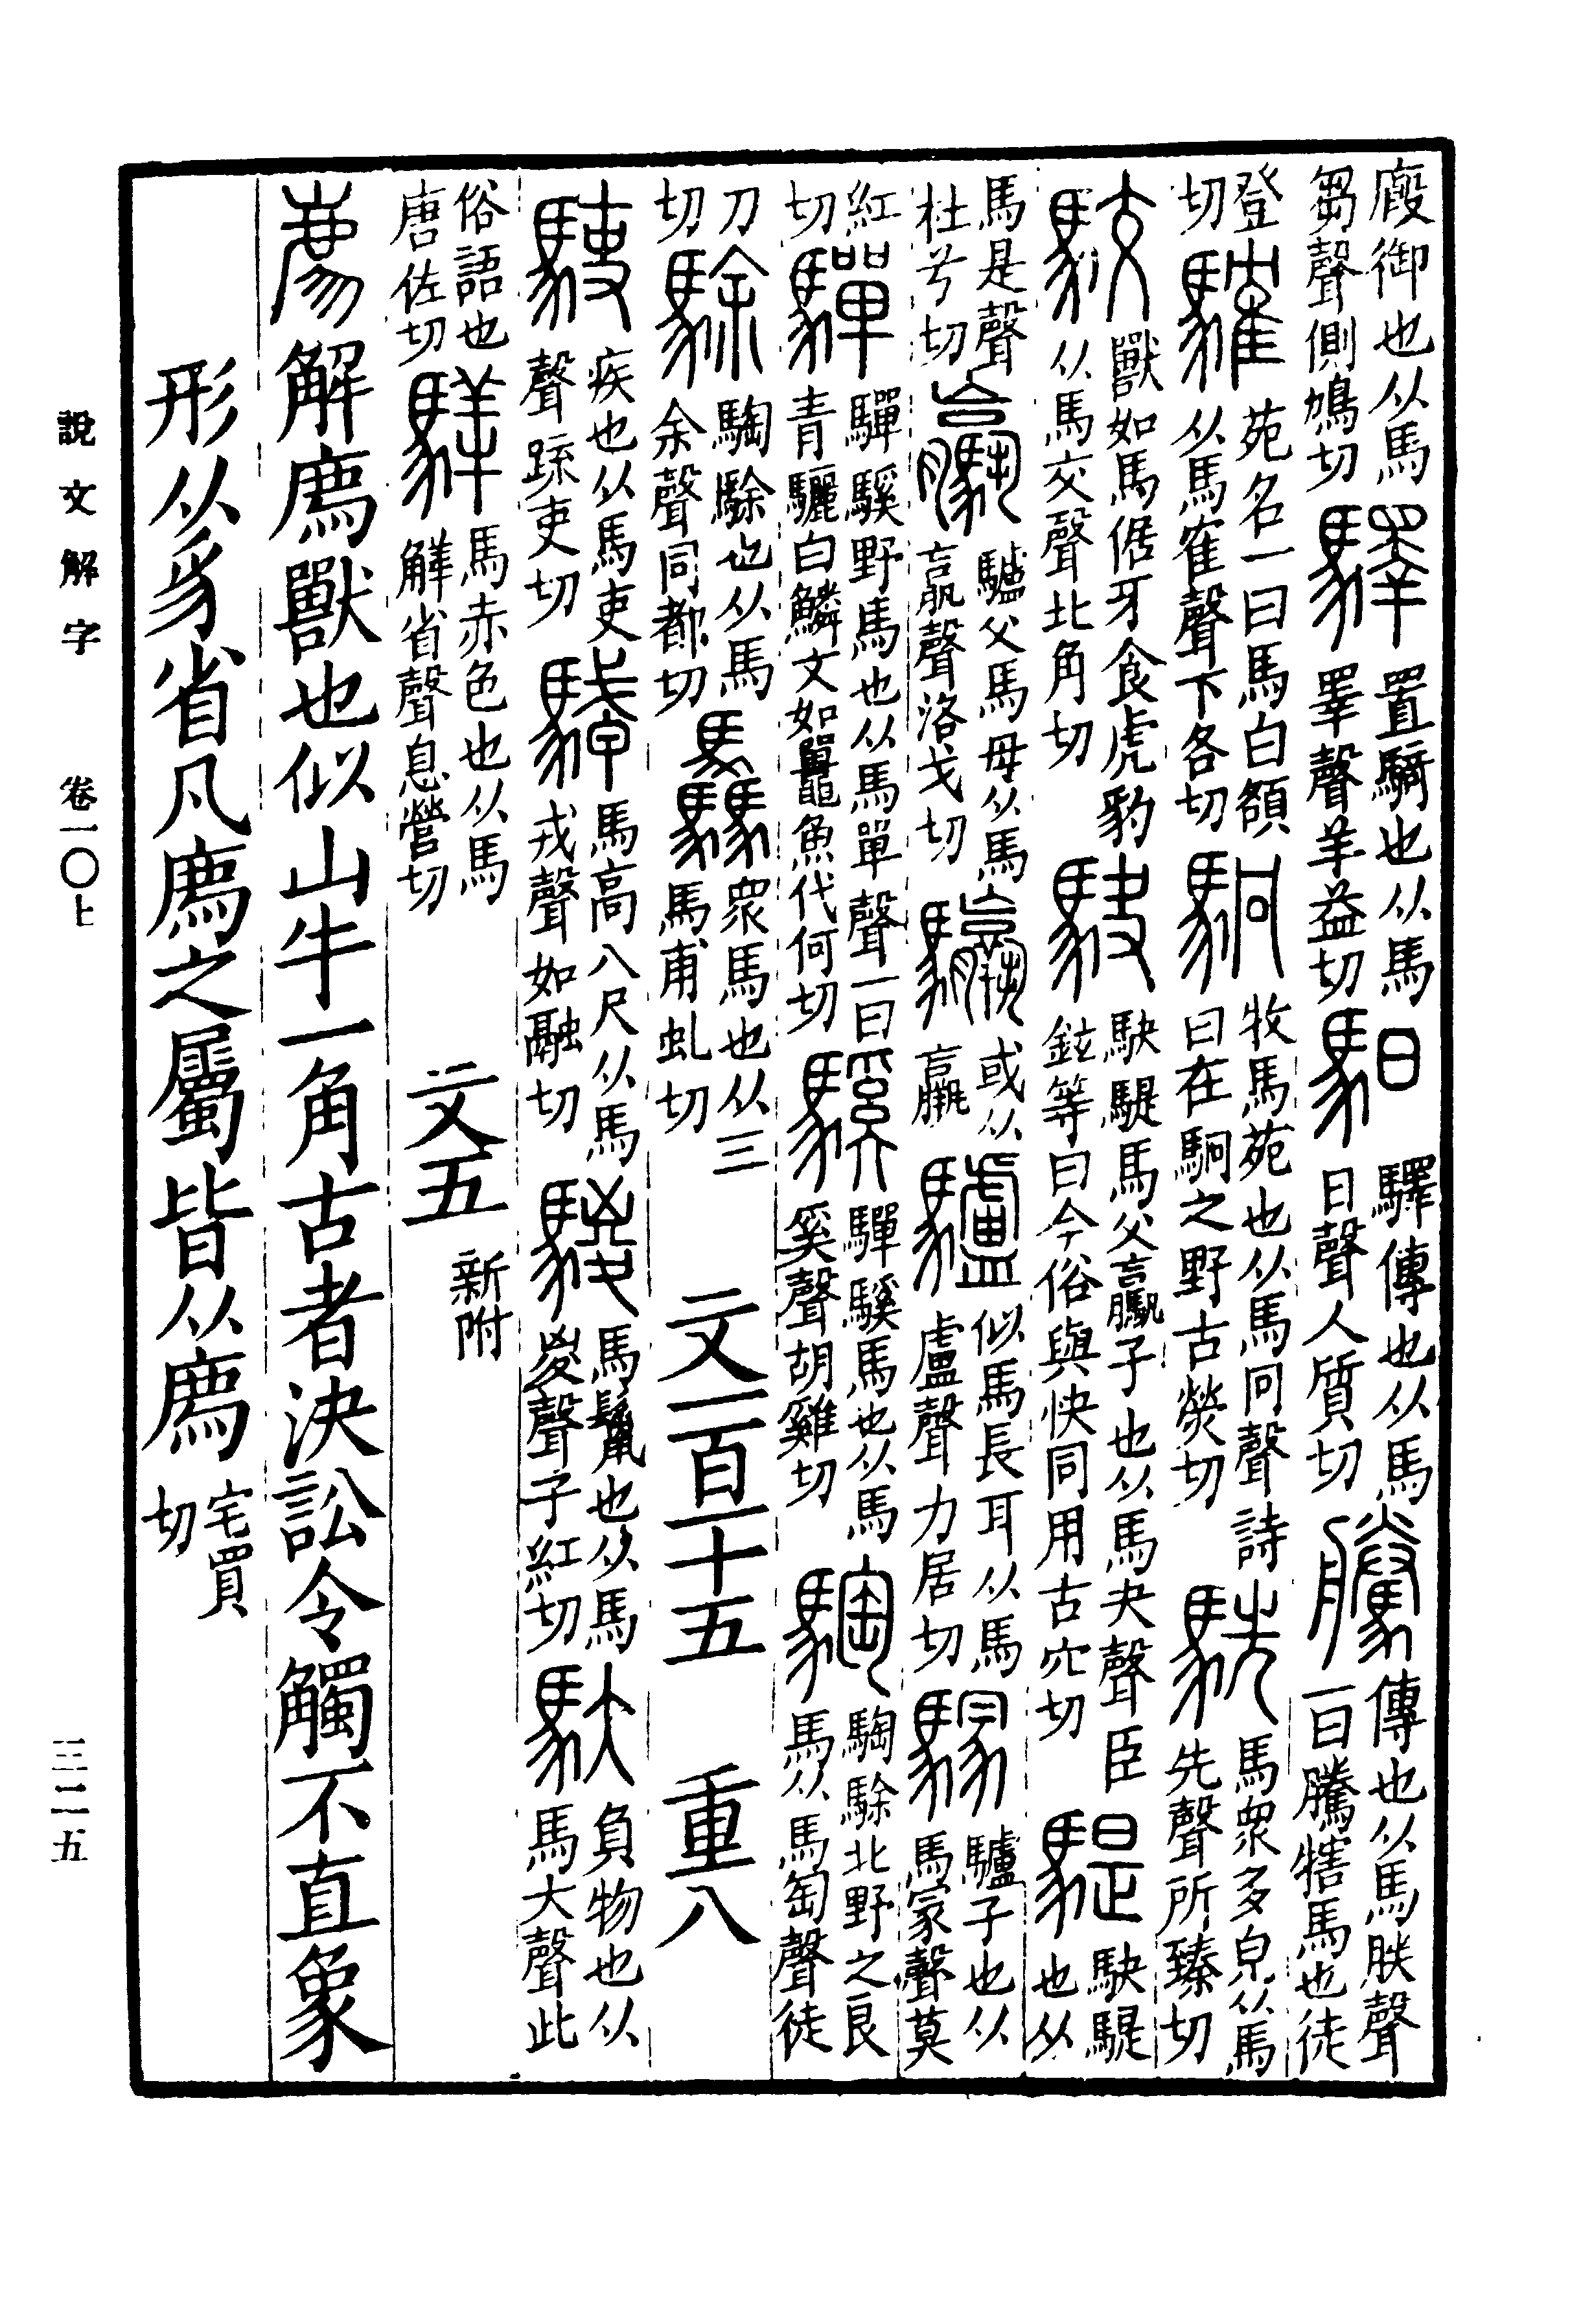 廄御也从馬芻聲側鳩切 驛 置騎也从馬睪聲羊益切 馹 驛傳也从馬日聲人質切 騰 傳也从馬朕聲一曰騰犗馬也徒
登切 䮤 苑名一曰馬白領从馬隺聲下各切 駉 牧馬苑也从馬冋聲詩曰在駉之野古熒切 駪 馬衆多皃从馬先聲所臻切
駮 獸如馬倨牙食虎豹从馬交聲北角切 駃 駃騠馬父驘子也从馬夬聲臣鉉等曰今俗與快同用古穴切 騠 駃騠也从
馬是聲杜兮切 驘 驢父馬母从馬𦝠聲洛戈切 或从羸 驢 似馬長耳从馬盧聲力居切 䮸 驢子也从馬冡聲莫
紅切 驒 驒騱野馬也从馬單聲一曰青驪白鱗文如鼉魚代何切 騱 驒騱馬也从馬奚聲胡雞切 騊 騊駼北野之良馬从馬匋聲徒
刀切 駼 騊駼也从馬余聲同都切 驫 衆馬也从三馬甫虬切 文一百一十五 重八
駛 疾也从馬吏聲疏吏切 駥 馬高八尺从馬戎聲如融切 騣 馬鬣也从馬㚇聲子紅切 馱 負物也从馬大聲此
俗語也唐佐切 騂 馬赤色也从馬觲省聲息營切 文五 新附
廌 解廌獸也似山牛一角古者決訟令觸不直象
形从豸省凡廌之屬皆从廌 宅買切
說文解字 卷一〇上 三二五